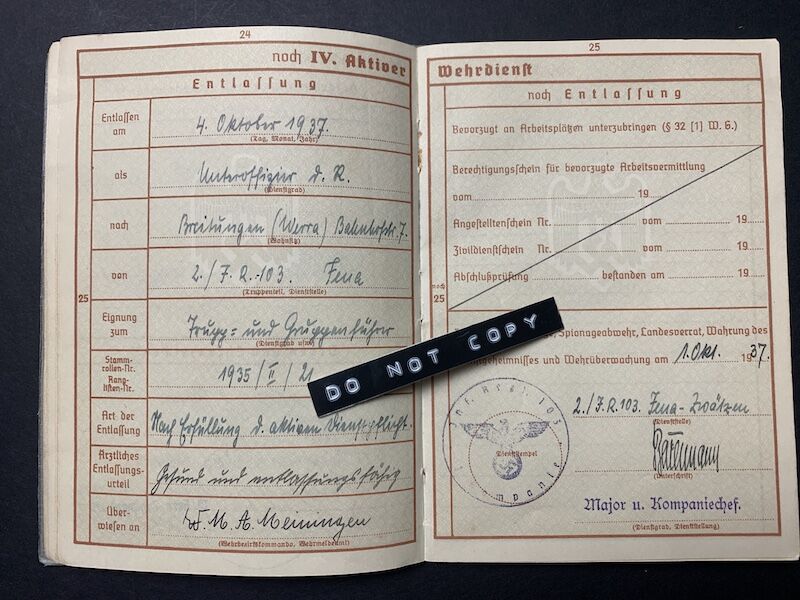 24
noch IV. Aktiver
Entlassung
Entlassen am
4. Oktober 1937.
(Tag, Monat, Jahr)
als
Unteroffizier d. R.
(Dienstgrad)
nach
Breitungen (Werra) Bahnhofstr. 7.
(Wohnsitz)
von
2./J.R.-103. Jena
(Truppenteil, Dienststelle)
25
Eignung zum
Trupp- und Gruppenführer
(Dienstgrad usw)
Stamm-
rollen-Nr.
Rang-
listen-Nr.
1935/II/21
Art der Entlassung
Nach Erfüllung d. aktiven Dienstpflicht.
Ärztliches
Entlassungs-
urteil
Gesund und entlassungsfähig
Über-
wiesen an
W.M.A. Meiningen
(Wehrbezirkskommando, Wehrmeldeamt)
25
Wehrdienst
noch Entlassung
Bevorzugt an Arbeitsplätzen unterzubringen (§ 32 [1] W. G.)
Berechtigungsschein für bevorzugte Arbeitsvermittlung
vom 19
Angestelltenschein Nr. vom 19
Zivildienstschein Nr. vom 19
Abschlußprüfung bestanden am 19
noch
25
DO NOT COPY
Spionageabwehr, Landesverrat, Wahrung des
und Wehrüberwachung am 1. Okt. 1937.
2./J.R.103. Jena-Zwätzen
(Dienststelle)
Inf. Regt. 103
Dienststempel
Kompanie
(Unterschrift)
Major u. Kompaniechef.
(Dienstgrad, Dienststellung)